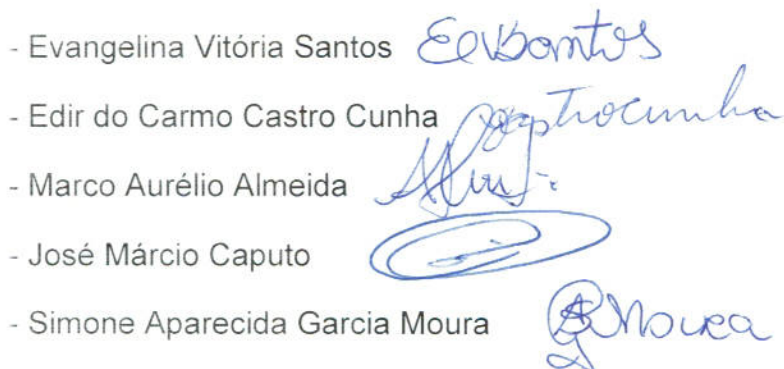 - Evangelina Vitória Santos
- Edir do Carmo Castro Cunha
- Marco Aurélio Almeida
- José Márcio Caputo
- Simone Aparecida Garcia Moura Moura